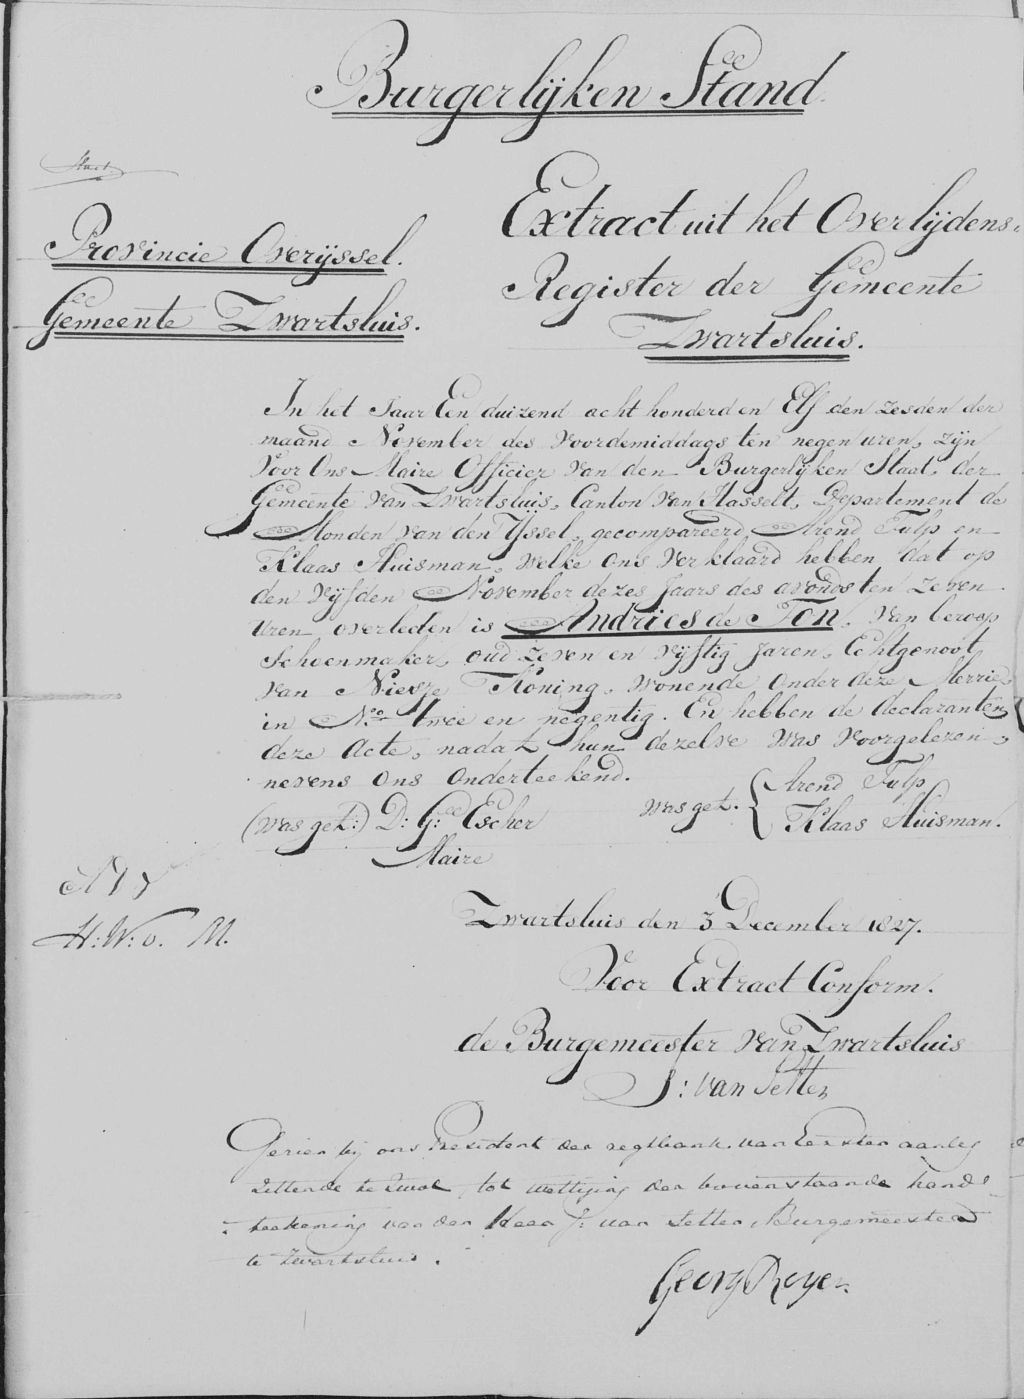 Burgerlijken Stand.
Provincie Overijssel.
Gemeente Zwartsluis.
Extract uit het Overlijdens-
Register der Gemeente
Zwartsluis.
In het Jaar Een duizend acht honderd en Elf den zesden der
maand November des voordemiddags ten negen uren, zijn
voor Ons Maire Officier van den Burgerlijken Staat, der
Gemeente van Zwartsluis, Canton van Hasselt, Departement de
Monden van den Yssel, gecompareerd Arend Tulp en
Klaas Huisman, welke ons verklaard hebben dat op
den vijfden November dezes Jaars des avonds ten zeven
Uren overleden is Andries de Ton, van beroep
Schoenmaker, oud zeven en vijftig jaren, Echtgenoot
van Koning, wonende onder deze Merrie
in No. twee en negentig. En hebben de declaranten
deze Acte, nadat hun dezelve was voorgelezen,
nevens ons onderteekend.
(was get:) D: G: Escher
Maire
was get. { Arend Tulp
Klaas Huisman.
H: W: v. M.
Zwartsluis den 3 December 1827.
Voor Extract Conform.
de Burgemeester van Zwartsluis
J: van Setten
Gezien bij ons President der regtbank van Eersten aanleg
zittende te Zwol, tot wettiging der bovenstaande hand-
:teekening van den Heer J: van Setten, Burgemeester
te Zwartsluis.
Georg Royer.